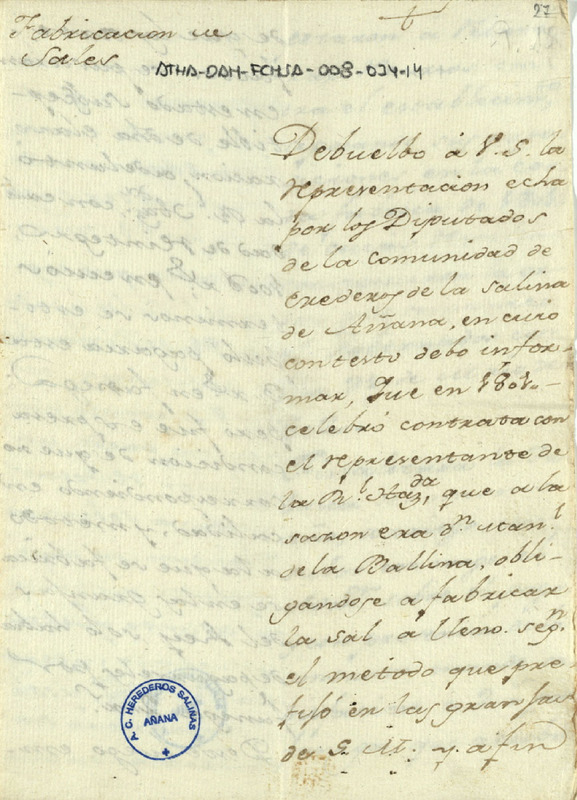 27
Fabricacion de
Sales
ATHA-DAH-FCHSA-008-034-14
Debuelbo á V. S. la
representacion echa
por los Diputados
de la comunidad de
erederos de la salina
de Añana, en cuio
contesto debo infor-
mar, que en 1801.
celebró contrata con
el representante de
la Rl. Hazda, que a la
sazon era Dn Man.l
de la Ballina, obli-
gandose a fabricar
la sal á lleno. segn
el metodo que pre-
fijó en las granjas
de S. M. y a fin
P. C. HEREDEROS SALINAS
AÑANA